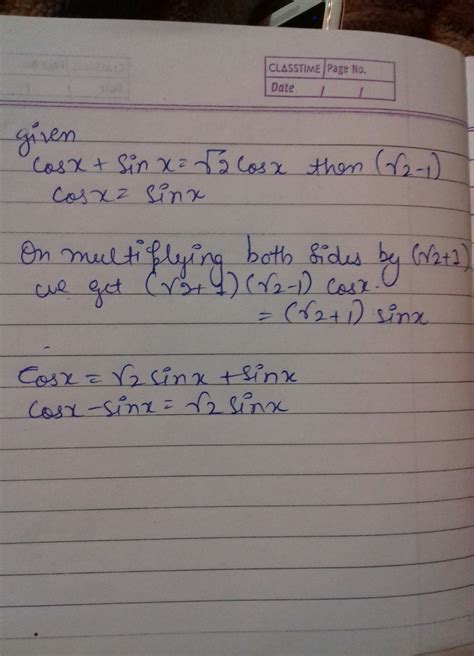 CLASSTIME Page No.
Date / /
given
cosx + sinx = √2 cosx then (√2-1)
cosx = sinx
On multiplying both sides by (√2+1)
we get (√2+1)(√2-1) cosx.
= (√2+1) sinx
cosx = √2 sinx + sinx
cosx - sinx = √2 sinx